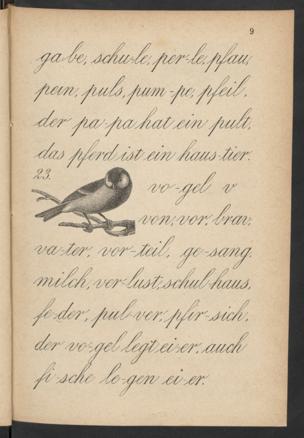 9
ga-be, schu-le, per-le, pfau,
pein, puls, pum-pe, pfeil.
der pa-pa hat ein pult,
das pferd ist ein haus-tier.
23.
vo-gel v
von, vor, brav,
va-ter, vor-teil, ge-sang.
milch, ver-lust, schul-haus,
fe-der, pul-ver, pfir-sich,
der vo-gel legt ei-er, auch
fi-sche le-gen ei-er.